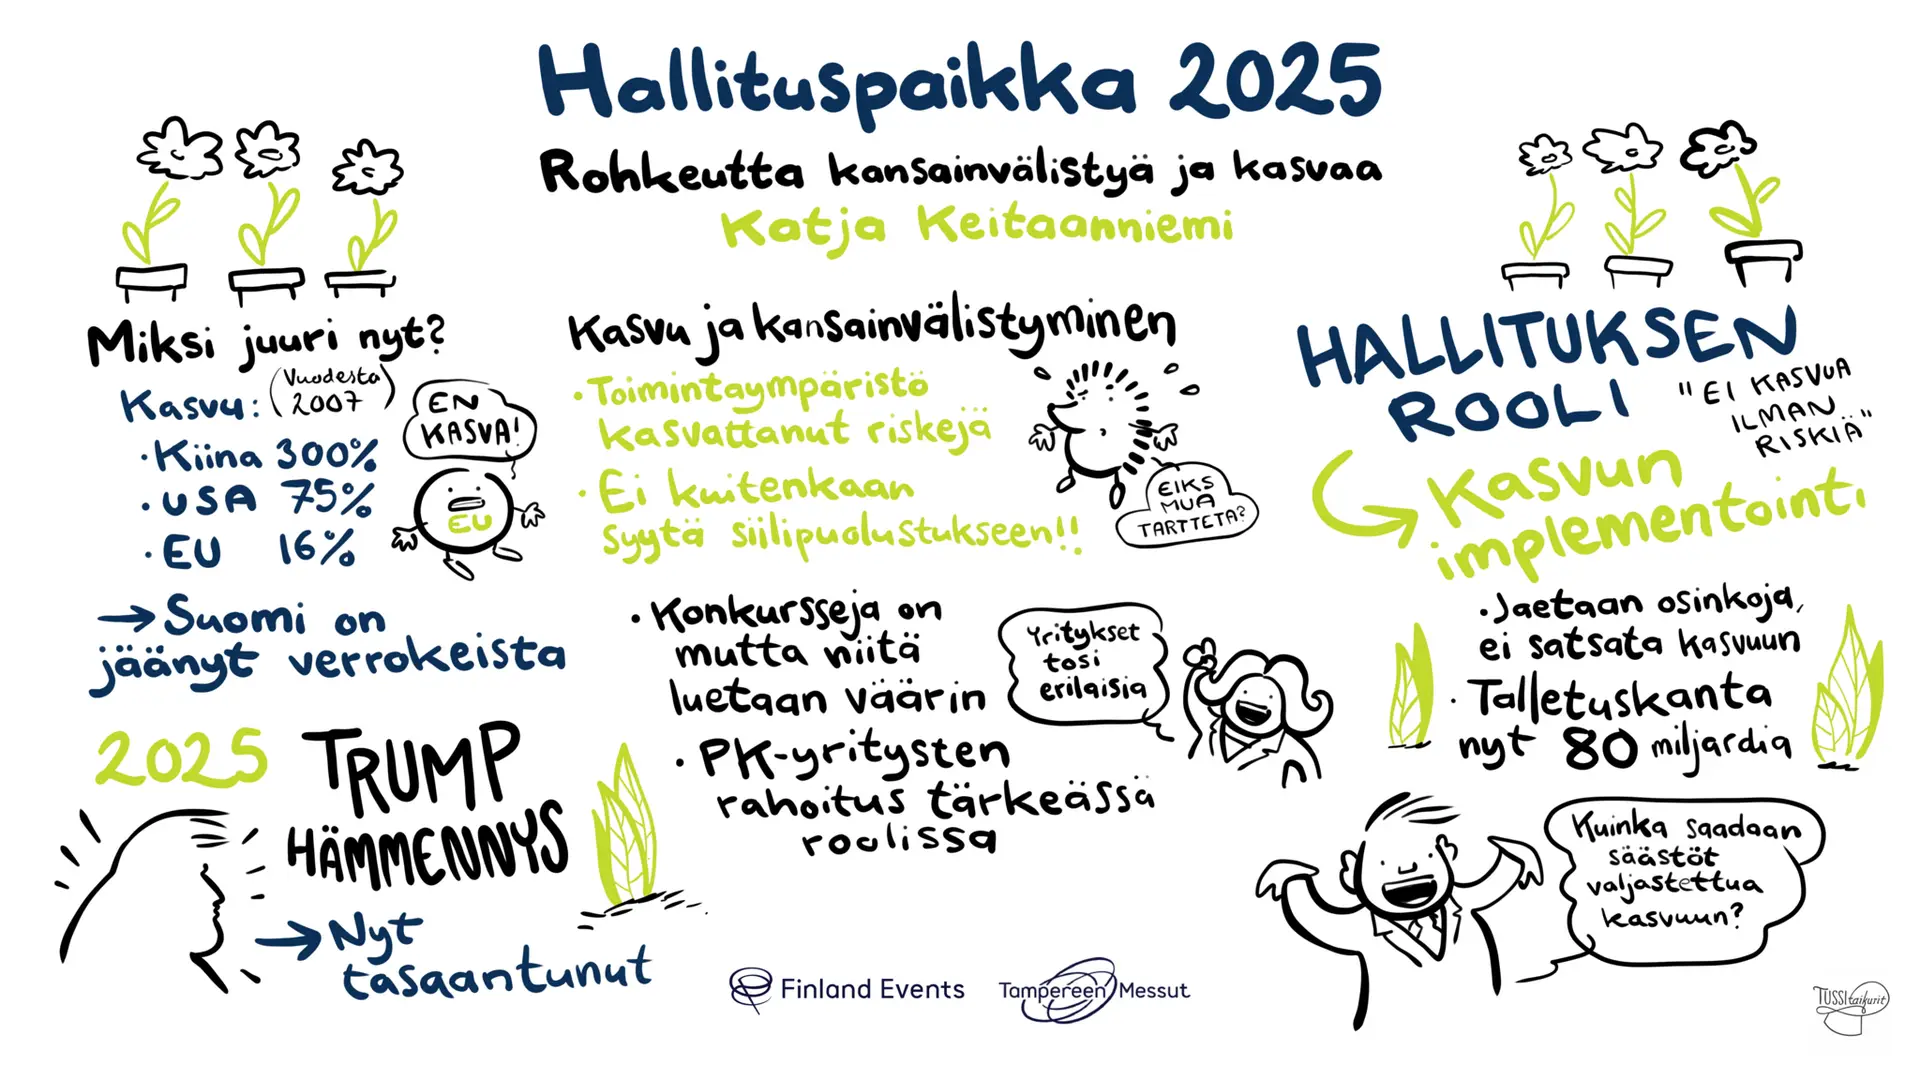 Hallituspaikka 2025
Rohkeutta kansainvälistyä ja kasvaa
Katja Keitaanniemi
Miksi juuri nyt?
Kasvu: (Vuodesta
2007)
EN
KASVA!
• Kiina 300%
• USA 75%
• EU 16%
EU
→ Suomi on
jäänyt verrokeista
2025
TRUMP
HÄMMENNYS
→ Nyt
tasaantunut
Kasvu ja kansainvälistyminen
• Toimintaympäristö
kasvattanut riskejä
• Ei kuitenkaan
syytä siilipuolustukseen!!
EIKS
MUA
TARTTETA?
• Konkursseja on
mutta niitä
luetaan väärin
Yritykset
tosi
erilaisia
• PK-yritysten
rahoitus tärkeässä
roolissa
HALLITUKSEN
ROOLI
"EI KASVUA
ILMAN
RISKIÄ"
Kasvun
implementointi
• Jaetaan osinkoja,
ei satsata kasvuun
• Talletuskanta
nyt 80 miljardia
Kuinka saadaan
säästöt
valjastettua
kasvuun?
Finland Events
Tampereen Messut
TUSSItaikurit